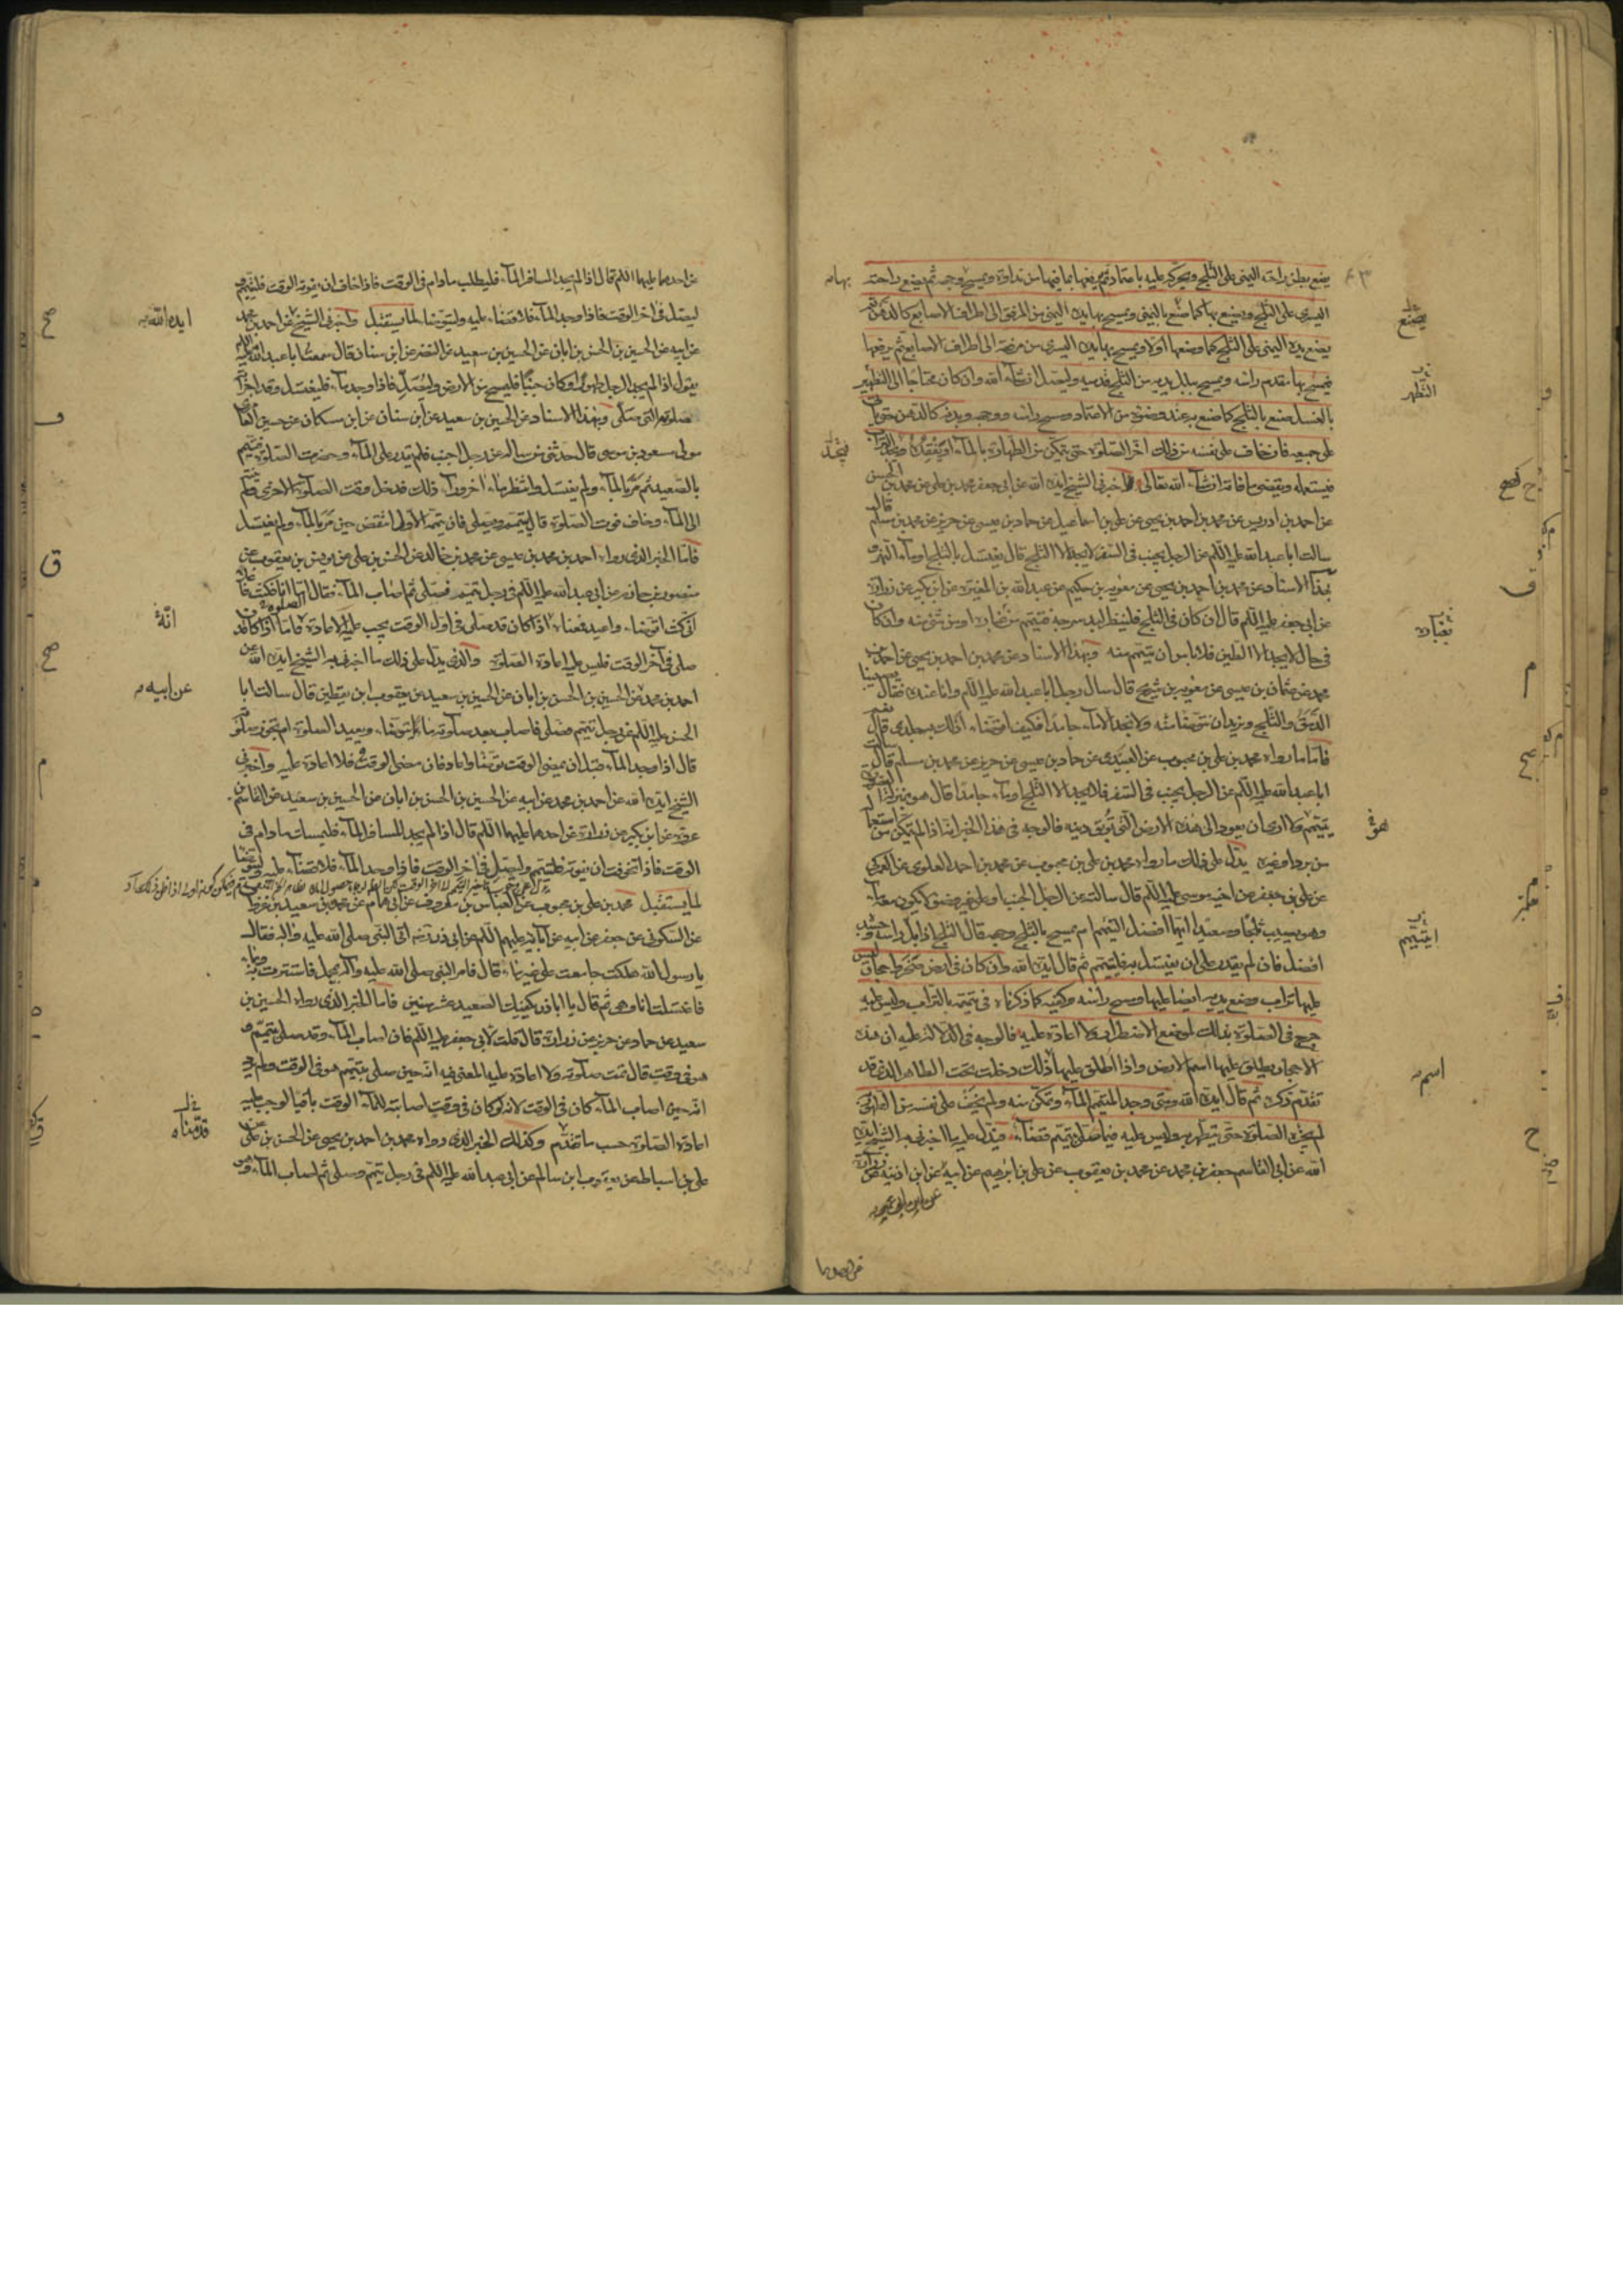 يضع بطن راحته اليمنى على الثلج ويحركه عليه باعتماد ثم يرفعها بما فيها من نداوة ويمسح وجهه ثم يضع راحته
اليسرى على الثلج ويصنع بها كما صنع باليمنى ويمسح بها يده اليمنى من المرفق الى اطراف الاصابع كالدهن ثم
يضع يده اليمنى على الثلج كما وضعها اولا ويمسح بها يده اليسرى من مرفقه الى اطراف الاصابع ثم يرفعها
فيمسح بها مقدم راسه ويمسح ببلل يديه من الثلج قدميه وليصل ان شآء الله وان كان محتاجا الى التطهير
بالغسل صنع بالثلج كما صنع به عند وضوئه من الاعتماد ومسح راسه ووجهه وبدنه كالدهن حتى ياتى
على جميعه فان خاف على نفسه من ذلك اخر الصلوة حتى يتمكن من الطهارة بالمآء او يفقده ويجد التراب
فيستعمله ويقضى ما فاته ان شآء الله تعالى اخبرنى الشيخ ايده الله عن ابى جعفر محمد بن على عن محمد بن الحسن
عن احمد بن ادريس عن محمد بن احمد بن يحيى عن على بن اسماعيل عن حماد بن عيسى عن حريز عن محمد بن مسلم قال
سالت ابا عبد الله عليه السلام عن الرجل يجنب فى السفر لا يجد الا الثلج قال يغتسل بالثلج او مآء النهر و
بهذا الاسناد عن محمد بن احمد بن يحيى عن معوية بن حكيم عن عبد الله بن المغيرة عن ابن بكير عن زرارة
عن ابى جعفر عليه السلام قال ان كان فى الثلج فلينظر لبد سرجه فيتيمم من غباره او من شئ منه وان كان
فى حال لا يجد الا الطين فلا باس ان يتيمم منه وبهذا الاسناد عن محمد بن احمد بن يحيى عن احمد بن
محمد عن عثمان بن عيسى عن معوية بن شريح قال سال رجل ابا عبد الله عليه السلام وانا عنده فقال يصيبنا
الدمق والثلج ونريد ان نتوضا منه ولا نجد الا مآء جامدا فكيف اتوضاء ادلك به جلدى قال نعم
فاما ما رواه محمد بن على بن محبوب عن العبيدى عن حماد بن عيسى عن حريز عن محمد بن مسلم قال سالت
ابا عبد الله عليه السلام عن الرجل يجنب فى السفر فلا يجد الا الثلج او مآء جامدا قال هو بمنزلة الضرورة
يتيمم ولا ارى ان يعود الى هذه الارض التى توبق دينه فالوجه فى هذا الخبر انه اذا لم يتمكن من استعماله
من برد او غيره يدل على ذلك ما رواه محمد بن على بن محبوب عن محمد بن احمد العلوى عن العمركى
عن على بن جعفر عن اخيه موسى عليه السلام قال سالته عن الرجل الجنب او على غير وضوء لا يكون معه مآء
وهو يصيب ثلجا وصعيدا ايهما افضل التيمم ام يمسح بالثلج وجهه قال الثلج اذا بل راسه وجسده
افضل فان لم يقدر على ان يغتسل به فليتيمم ثم قال ايده الله وان كان فى ارض صخر واحجار ليس
عليها تراب وضع يديه ايضا عليها ومسح وجهه وكفيه كما ذكرناه فى تيممه بالتراب وليس عليه
حرج فى الصلوة بذلك لموضع الاضطرار ولا اعادة عليه فالوجه فى الدلالة عليه ان هذه
الاحجار يطلق عليها اسم الارض واذا اطلق عليها ذلك دخلت تحت الظاهر الذى قد
تقدم ذكره ثم قال ايده الله ومتى وجد المتيمم المآء وتمكن منه ولم يخف على نفسه من الطهور
لم يجزه الصلوة حتى يتطهر به وليس عليه فيما صلى بتيمم قضآء فيدل عليه ما اخبرنى به الشيخ ايده
الله عن ابى القاسم جعفر بن محمد عن محمد بن يعقوب عن على بن ابرهيم عن ابيه عن ابن اذينة عن زرارة
عن ابن ابى عمير
عن احدهما
٤٣
بها
يصنع
التطهر
فيجد
غباره
هو
ايتيمم
اسم
عن احدهما عليهما السلام قال اذا لم يجد المسافر المآء فليطلب ما دام فى الوقت فاذا خاف ان يفوته الوقت فليتيمم و
ليصل فى اخر الوقت فاذا وجد المآء فلا قضاء عليه وليتوضا لما يستقبل واخبرنى الشيخ عن احمد بن محمد
عن ابيه عن الحسين بن الحسن بن ابان عن الحسين بن سعيد عن النضر عن ابن سنان قال سمعت ابا عبد الله عليه السلام
يقول اذا لم يجد الرجل طهورا وكان جنبا فليمسح من الارض وليصل فاذا وجد مآء فليغتسل وقد اجزاته
صلوته التى صلى وبهذا الاسناد عن الحسين بن سعيد عن ابن سنان عن ابن مسكان عن حسين العامرى
عمن ساله عن رجل اجنب فلم يقدر على المآء وحضرت الصلوة فتيمم
بالصعيد ثم مر بالمآء ولم يغتسل وانتظر مآء اخر ورآء ذلك فدخل وقت الصلوة الاخرى ولم ينته
الى المآء وخاف فوت الصلوة قال يتيمم ويصلى فان تيممه الاول انتقض حين مر بالمآء ولم يغتسل
فاما الخبر الذى رواه احمد بن محمد بن عيسى عن محمد بن خالد عن الحسن بن على عن يونس بن يعقوب عن
منصور بن حازم عن ابى عبد الله عليه السلام فى رجل تيمم فصلى ثم اصاب المآء فقال اما انا فكنت فاعلا
انى كنت اتوضاء واعيد فمعناه اذا كان قد صلى فى اول الوقت يجب عليه الاعادة فاما اذا كان قد
صلى فى اخر الوقت فليس عليه اعادة الصلوة والذى يدل على ذلك ما اخبرنى به الشيخ ايده الله عن
احمد بن محمد عن الحسين بن الحسن بن ابان عن الحسين بن سعيد عن يعقوب بن يقطين قال سالت ابا
الحسن عليه السلام عن رجل تيمم فصلى فاصاب بعد صلوته مآء ايتوضاء ويعيد الصلوة ام تجوز صلوته
قال اذا وجد المآء قبل ان يمضى الوقت توضا واعاد فان مضى الوقت فلا اعادة عليه واخبرنى
الشيخ ايده الله عن احمد بن محمد عن ابيه عن الحسين بن الحسن بن ابان عن الحسين بن سعيد عن القاسم بن
عروة عن ابن بكير عن زرارة عن احدهما عليهما السلام قال اذا لم يجد المسافر المآء فليمسك ما دام فى
الوقت فاذا تخوف ان يفوته فليتيمم وليصل فى اخر الوقت فاذا وجد المآء فلا قضآء عليه وليتوضا
لما يستقبل محمد بن على بن محبوب عن العباس بن معروف عن ابى همام عن محمد بن سعيد بن غزوان
عن السكونى عن جعفر عن ابيه عن آبائه عليهم السلام عن ابى ذر انه اتى النبى صلى الله عليه وآله فقال
يا رسول الله هلكت جامعت على غير مآء قال فامر النبى صلى الله عليه وآله بمحمل فاستترت به وبمآء
فاغتسلت انا وهى ثم قال يا ابا ذر يكفيك الصعيد عشر سنين فاما الخبر الذى رواه الحسين بن
سعيد عن حماد عن حريز عن زرارة قال قلت لابى جعفر عليه السلام فان اصاب المآء وقد صلى بتيمم و
هو فى وقت قال تمت صلوته ولا اعادة عليه المعنى فيه انه حين صلى بتيمم هو فى الوقت ولم يرد
انه حين اصاب المآء كان فى الوقت لانه لو كان فى وقت اصابته للمآء الوقت باقيا لوجب عليه
اعادة الصلوة حسب ما تقدم وكذلك الخبر الذى رواه محمد بن احمد بن يحيى عن الحسن بن على عن
على بن اسباط عن يعقوب بن سالم عن ابى عبد الله عليه السلام فى رجل تيمم وصلى ثم اصاب المآء وهو
ايده الله
انه
عن ابيه
قدمناه